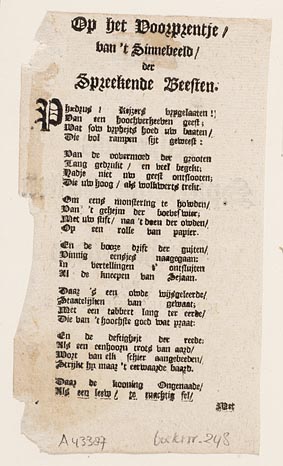 Op het Voorprentje/
van 't Sinnebeeld/
der
Spreekende Beesten.
Phedrus! Keizers vrygelaaten!
Van een hoochverheeven geest;
Wat sow vryheits hoed uw baaten/
Die vol rampen sijt geweest:
Van de oovermoed der grooten
Lang gedrukt/ en veel begekt;
Hadje niet uw geest ontslooten;
Die uw hoog/ als wolkwerts trekt.
Om eens monstering te howden/
Van 't geheim der boeveswier;
Met uw stift/ naa 't doen der owden/
Op een rolle van papier.
En de booze drift der guiten/
Vinnig eensjes naagegaan:
In vertellingen t' ontsluiten
Al de kneepen van Sejaan.
Daar 's een owde wijsgeleerde/
Staatelijken van gewaat;
Met een tabbert lang ter eerde/
Die van 't hoochste goed wat praat:
En de deftigheit der reede:
Als een eenhoorn trots van aard/
Wort van elk schier aangebeeden/
Strijkt hy maar 't eerwaarde baard.
Daar de kooning Ongenaade/
Als een leew/ so machtig fel/
Met
A 43387
boeknr. 248